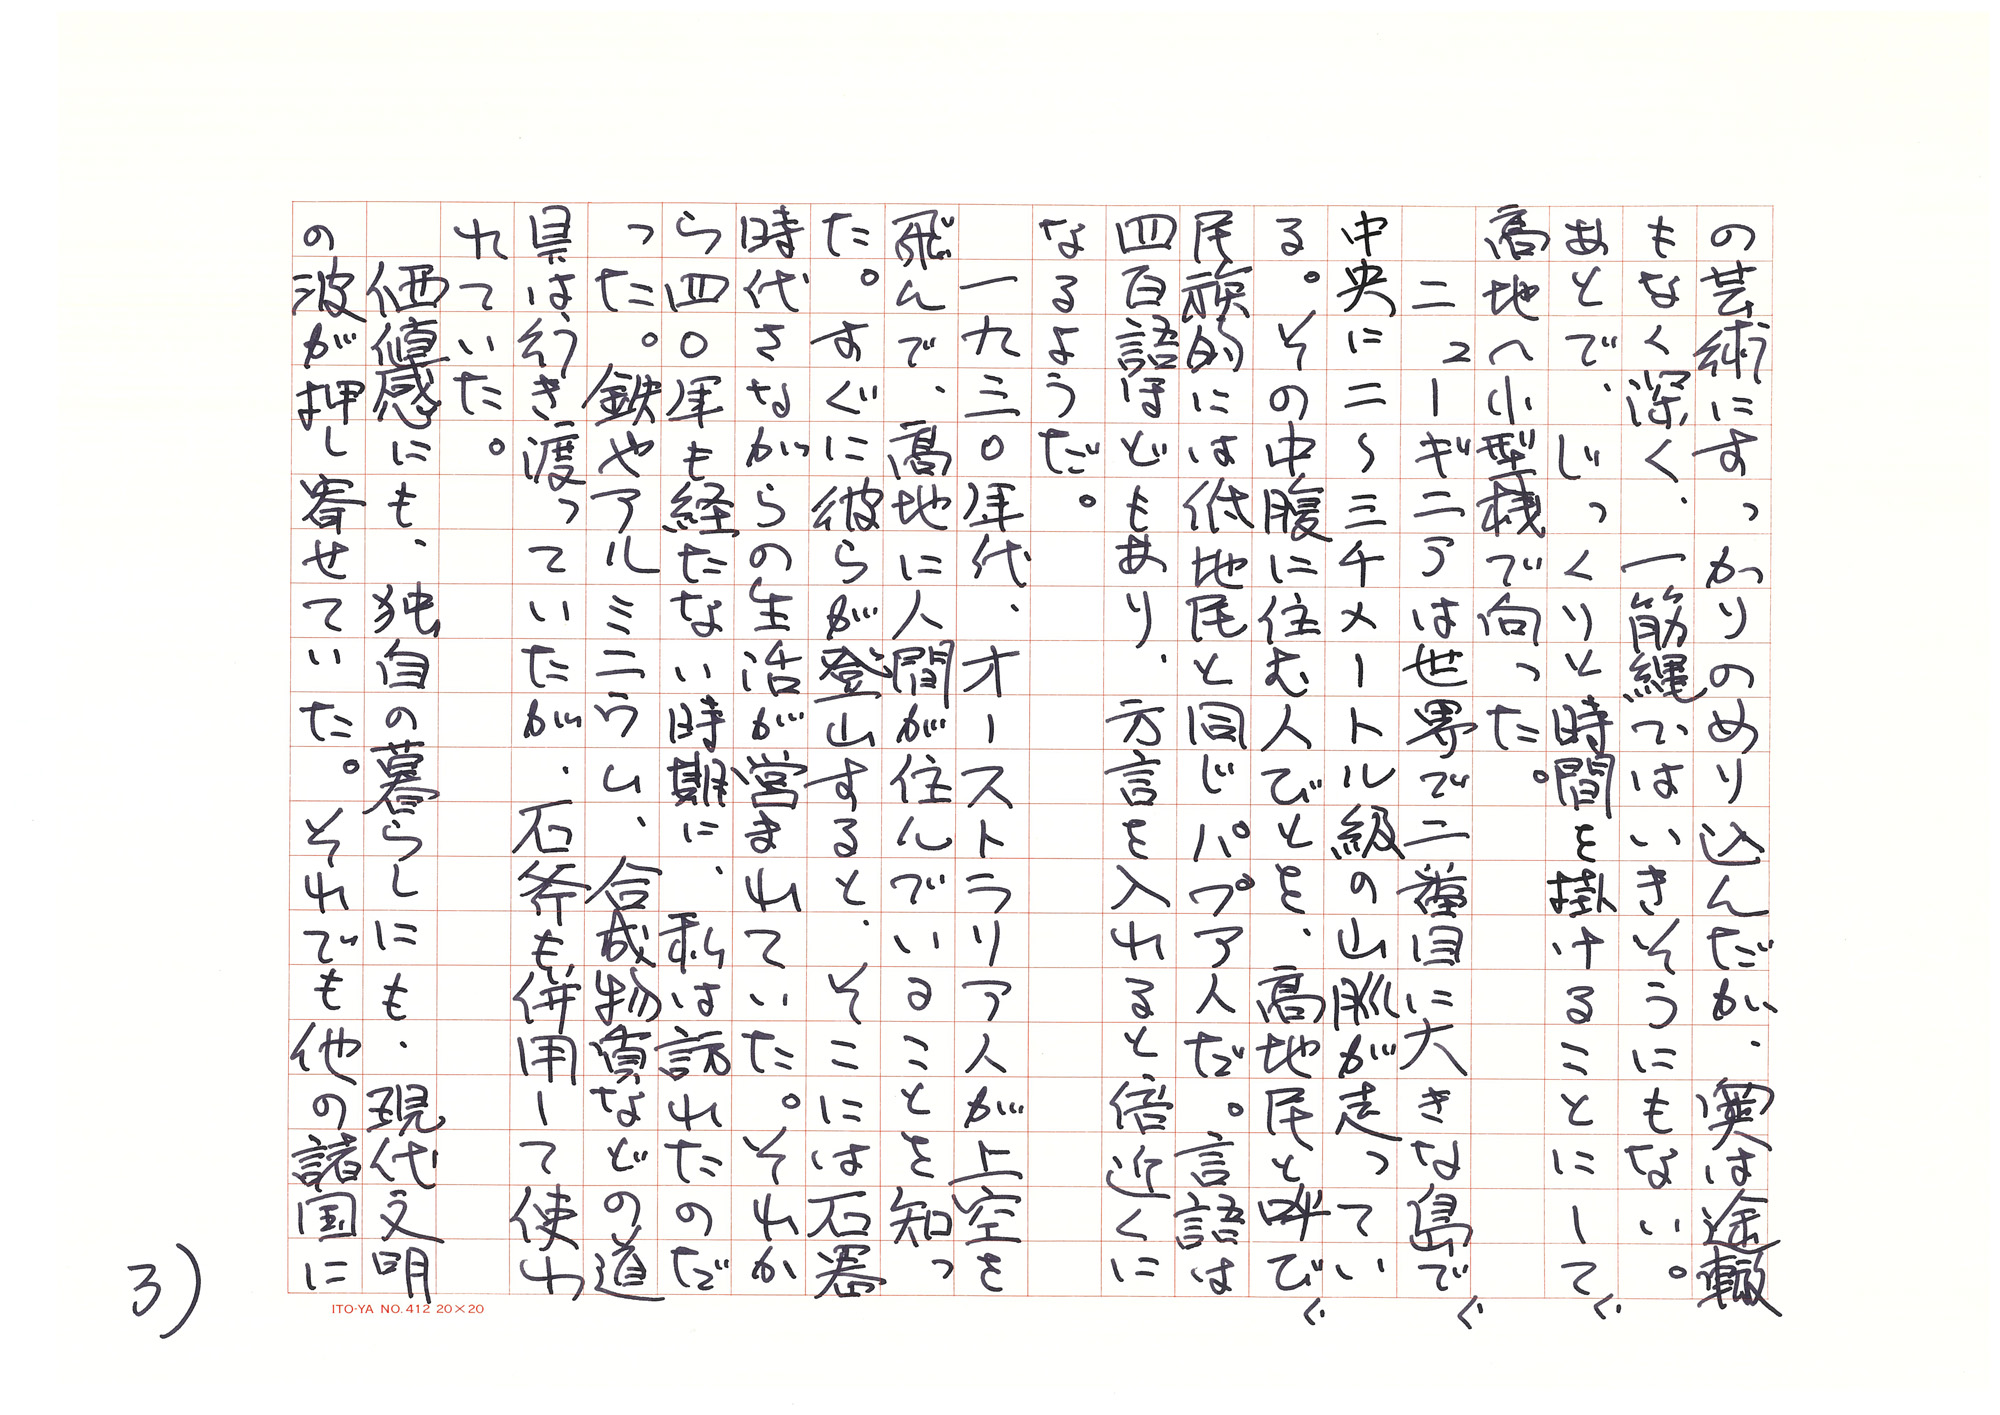 の芸術にすっかりのめり込んだが、奥は途轍
もなく深く、一筋縄ではいきそうにもない。
あとで、じっくりと時間を掛けることにして、
高地へ小型機で向った。
　ニューギニアは世界で二番目に大きな島で、
中央に二～三千メートル級の山脈が走ってい
る。その中腹に住む人びとを、高地民と呼び、
民族的には低地民と同じパプア人だ。言語は
四百語ほどもあり、方言を入れると倍近くに
なるようだ。
　一九三〇年代、オーストラリア人が上空を
飛んで、高地に人間が住んでいることを知っ
た。すぐに彼らが登山すると、そこには石器
時代さながらの生活が営まれていた。それか
ら四〇年も経たない時期に、私は訪れたのだ
った。鉄やアルミニウム、合成物質などの道
具は行き渡っていたが、石斧も併用して使わ
れていた。
　価値感にも、独自の暮らしにも、現代文明
の波が押し寄せていた。それでも他の諸国に
ITO-YA NO.412 20×20
3)